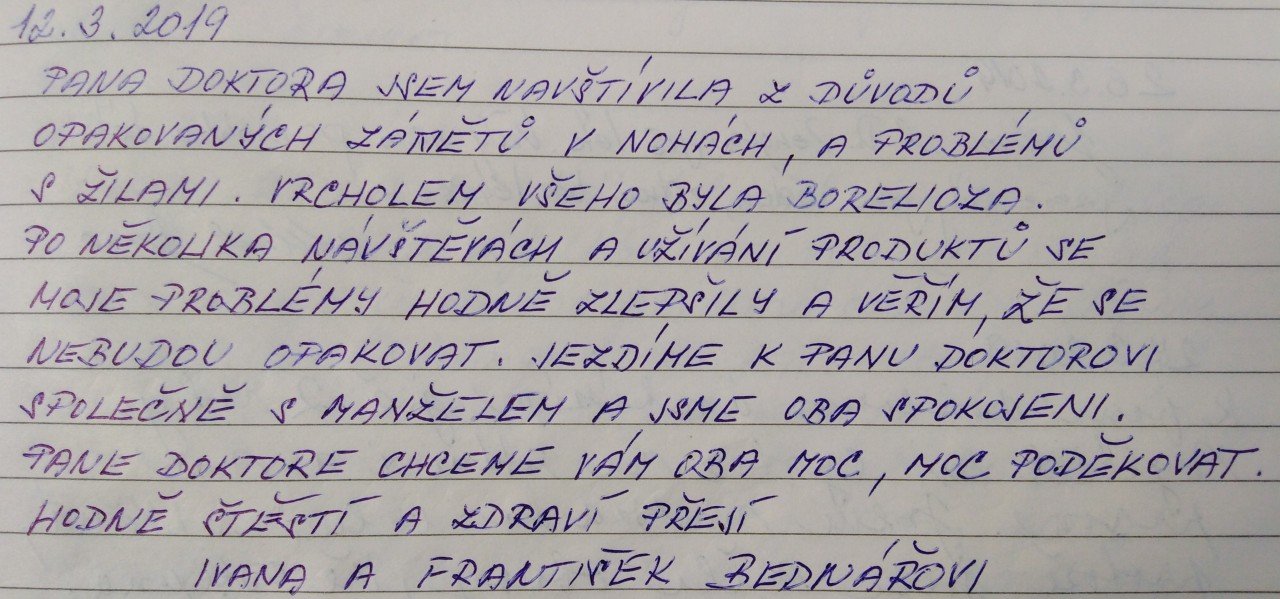 12.3.2019
PANA DOKTORA JSEM NAVŠTÍVILA Z DŮVODŮ
OPAKOVANÝCH ZÁNĚTŮ V NOHÁCH, A PROBLÉMŮ
S ŽILAMI. VRCHOLEM VŠEHO BYLA BORELIOZA.
PO NĚKOLIKA NÁVŠTĚVÁCH A UŽÍVÁNÍ PRODUKTŮ SE
MOJE PROBLÉMY HODNĚ ZLEPŠILY A VĚŘÍM, ŽE SE
NEBUDOU OPAKOVAT. JEZDÍME K PANU DOKTOROVI
SPOLEČNĚ S MANŽELEM A JSME OBA SPOKOJENI.
PANE DOKTORE CHCEME VÁM OBA MOC, MOC PODĚKOVAT.
HODNĚ ŠTĚSTÍ A ZDRAVÍ PŘEJÍ
IVANA A FRANTIŠEK BEDNÁŘOVI